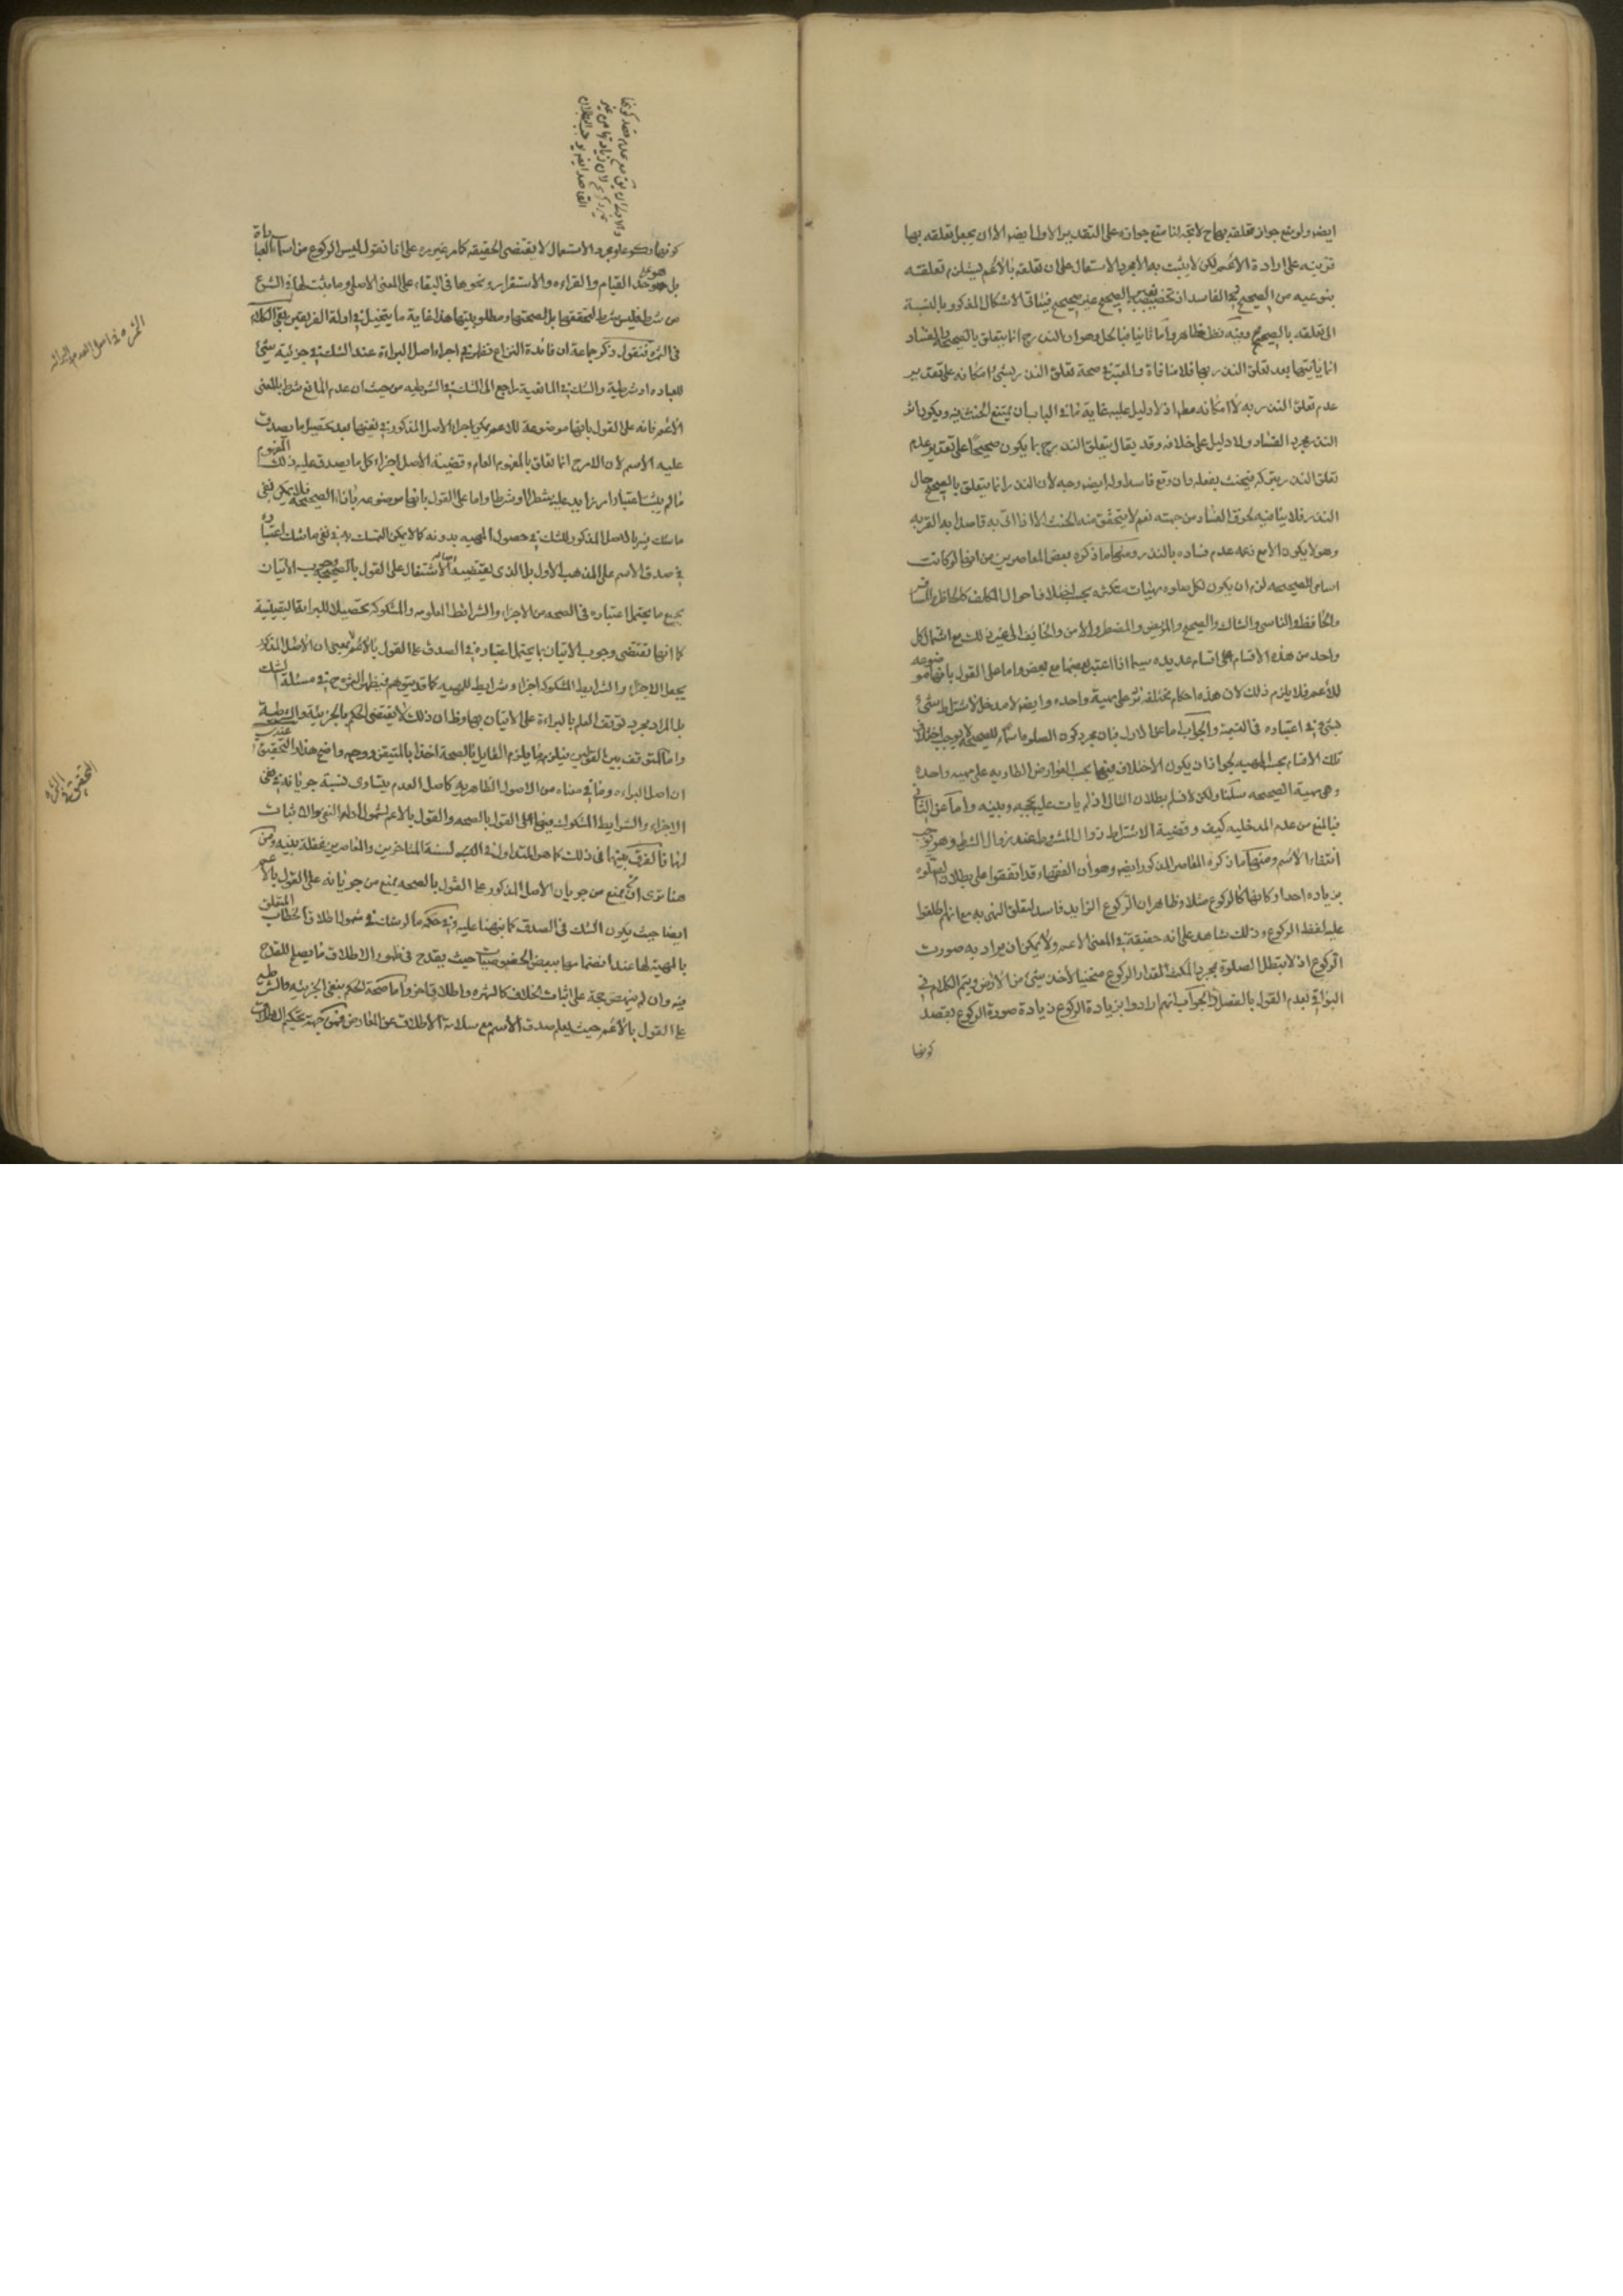 ايضه ولو منع جواز تعلقه بها ح لاتجه لنا منع جوازه على التقدير الاول ايضه الا ان يجعل تعلقه بها
قرينه على ارادة الاعم لكن لا يثبت به الا مجرد الاستعمال على ان تعلقه بالاعم يستلزم تعلقه
بنوعيه من الصحيح والفاسد اذ تخصيصه بالصحيح تعيين صحيح فيتاتى الاشكال المذكور بالنسبة
الى تعلقه بالصحيح وفيه نظر ظاهر واما ثانيا فبالحل وهو ان النذر ح انما يتعلق بالصحيح والفساد
انما ياتيها بعد تعلق النذر بها فلا منافاة والمعتبر في صحة تعلق النذر بشئ امكانه على تقدير
عدم تعلق النذر به لا امكانه مطم اذ لا دليل عليه غاية ما في الباب ان يمتنع الحنث فيه ويكون اثر
النذر مجرد الفساد ولا دليل على خلافه وقد يقال يتعلق النذر ح بما يكون صحيحا على تقدير عدم
تعلق النذر بتركه فيحنث بفعله وان وقع فاسدا وله ايضه وجه لان النذر انما يتعلق بالصحيح حال
النذر فلا ينافيه لحوق الفساد من جهته نعم لا يتحقق منه الحنث الا اذا اتى به قاصدا به القربه
وهو لا يكون الا مع زعمه عدم فساده بالنذر ومنها ما ذكره بعض المعاصرين من انها لو كانت
اسامى للصحيحه لزم ان يكون لكل صلوه مهيات متكثره بحسب اختلاف احوال المكلف كالحاضر والمسافر
والحافظ والناسى والشاك والصحيح والمريض والمضطر والامن والخايف الى غير ذلك مع اشتمال كل
واحد من هذه الاقسام على اقسام عديده سيما اذا اعتبر بعضها مع بعض واما على القول بانها موضوعه
للاعم فلا يلزم ذلك لان هذه احكام مختلفه ترد على مهية واحده وايضه لا مدخل لاشتراط شئ
بشئ في اعتباره في التسمية والجواب اما عن الاول فبان مجرد كون الصلوة اسما للصحيحه لا يوجب اختلاف
تلك الاقسام بحسب المهيه لجواز ان يكون الاختلاف بينها بحسب العوارض الطاريه على مهيه واحده
وهى مهية الصحيحه سلمنا ولكن لا نسلم بطلان التالى اذ لم يات عليه بحجه وبينه واما عن الثاني
فبالمنع من عدم المدخليه كيف وقضية الاشتراط زوال المشروط عند زوال الشرط وهو يوجب
انتفاء الاسم ومنها ما ذكره المعاصر المذكور ايضه وهو ان الفقهاء قد اتفقوا على بطلان الصلوه
بزياده احد اركانها كالركوع مثلا وظاهر ان الركوع الزايد فاسد لتعلق النهى به مع انهم اطلقوا
عليه لفظ الركوع وذلك شاهد على انه حقيقة في المعنى الاعم ولا يمكن ان يراد به صورت
الركوع اذ لا تبطل الصلوة بمجرد المكث المقدار الركوع منحنيا لاخذ شئ من الارض ويتم الكلام في
البواقي بعدم القول بالفصل والجواب انهم ارادوا بزيادة الركوع زيادة صورة الركوع بقصد
كونها
كونها ركوعا ومجرد الاستعمال لا يقتضى الحقيقه كما مر غير مرة على انا نقول ليس الركوع من اسامى العبادة
بل هو كالقيام والقراءه والاستقرار ونحوها في البقاء على المعنى الاصلى وما يثبت لها في الشرع
من شرط فليس شرط لتحققها بل لصحتها ومطلوبيتها هذا غاية ما يتخيل في ادلة الفريقين بقى الكلام
في الثمره فنقول ذكر جماعة ان فائدة النزاع تظهر في اجراء اصل البراءة عند الشك في جزئية شئ
للعباده او شرطية والشك في المانعية راجع الى الشك في الشرطيه من حيث ان عدم المانع شرط بالمعنى
الاعم فانه على القول بانها موضوعة للاعم يمكن اجراء الاصل المذكور في نفيها بعد تحصيل ما يصدق
عليه الاسم لان الامر ح انما تعلق بالمفهوم العام وقضية الاصل اجزاء كل ما يصدق عليه ذلك المفهوم
ما لم يثبت اعتبار امر زايد عليه شطرا او شرطا واما على القول بانها موضوعه بازاء الصحيحه فلا يمكن نفى
ما شك فيه بالاصل المذكور للشك في حصول المهيه بدونه كما لا يمكن التمسك به في نفى ما شك اعتباره
في صدق الاسم على المذهب الاول بل الذى يقتضيه اصالة الاشتغال على القول بالصحيح وجوب الاتيان
بجميع ما يحتمل اعتباره في الصحه من الاجزاء والشرائط المعلومه والمشكوكه تحصيلا للبراءة اليقينية
كما انها تقتضى وجوب الاتيان بما يحتمل اعتباره في الصدق على القول بالاعم لا بمعنى ان الاصل المذكور
يجعل الاجزاء والشرايط المشكوكه اجزاء وشرايط للمهيه كما قد يتوهم فيظهر الثمره ح في مسئلة الشك
بل المراد مجرد توقف العلم بالبراءة على الاتيان بها وظ ان ذلك لا يقتضى الحكم بالجزئية والشرطية
واما المتوقف بين القولين فيلزمه ما يلزم القايل بالصحة اخذا بالمتيقن ووجهه واضح هذا والتحقيق عندى
ان اصل البراءه وما في معناه من الاصول الظاهريه كاصل العدم يتساوى نسبة جريانه في نفى
الاجزاء والشرايط المشكوك فيها على القول بالصحه والقول بالاعم لشمول ادله النفى والاثبات
لها فالفرق بينها في ذلك كما هو المتداول في السنة المتاخرين والمعاصرين غفلة بينه ومن
هنا ترى ان من يمنع من جريان الاصل المذكور على القول بالصحه يمنع من جريانه على القول بالاعم
ايضا حيث يكون الشك في الصدق كما نبهنا عليه وفي حكمه ما لو شك في شمول اطلاق الخطاب المتعلق
بالمهية لها عند انضمامها ببعض الخصوصيات حيث يقدح في ظهور الاطلاق ما يصلح للقدح
فيه وان لم ينهض حجة على اثبات الخلاف كالشهره واطلاق اخر واما صحة الحكم بنفى الجزئيه والشرطيه
على القول بالاعم حيث يعلم صدق الاسم مع سلامة الاطلاق عن المعارض فمن جهة تحكيم الاطلاق